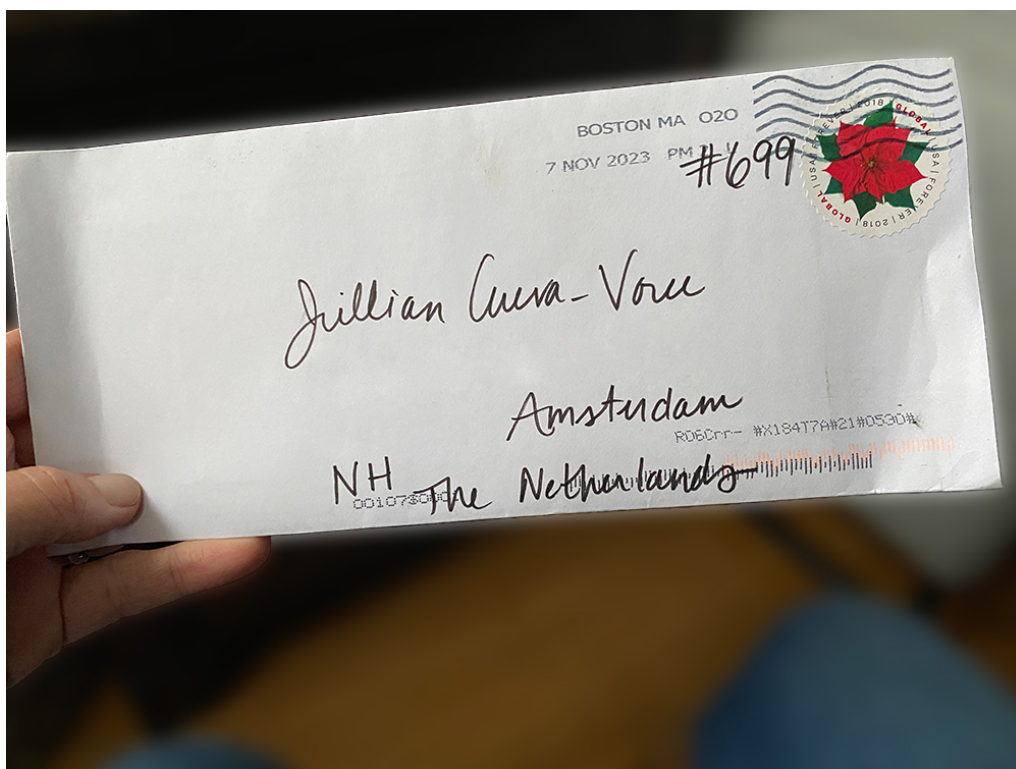 BOSTON MA 020
7 NOV 2023 PM
#699
GLOBAL | USA | FOREVER | 2018 | GLOBAL | USA | FOREVER | 2018
Jillian Cueva-Voru
Amsterdam
R06Crr- #X184T7A#21#0530#
NH The Netherlands